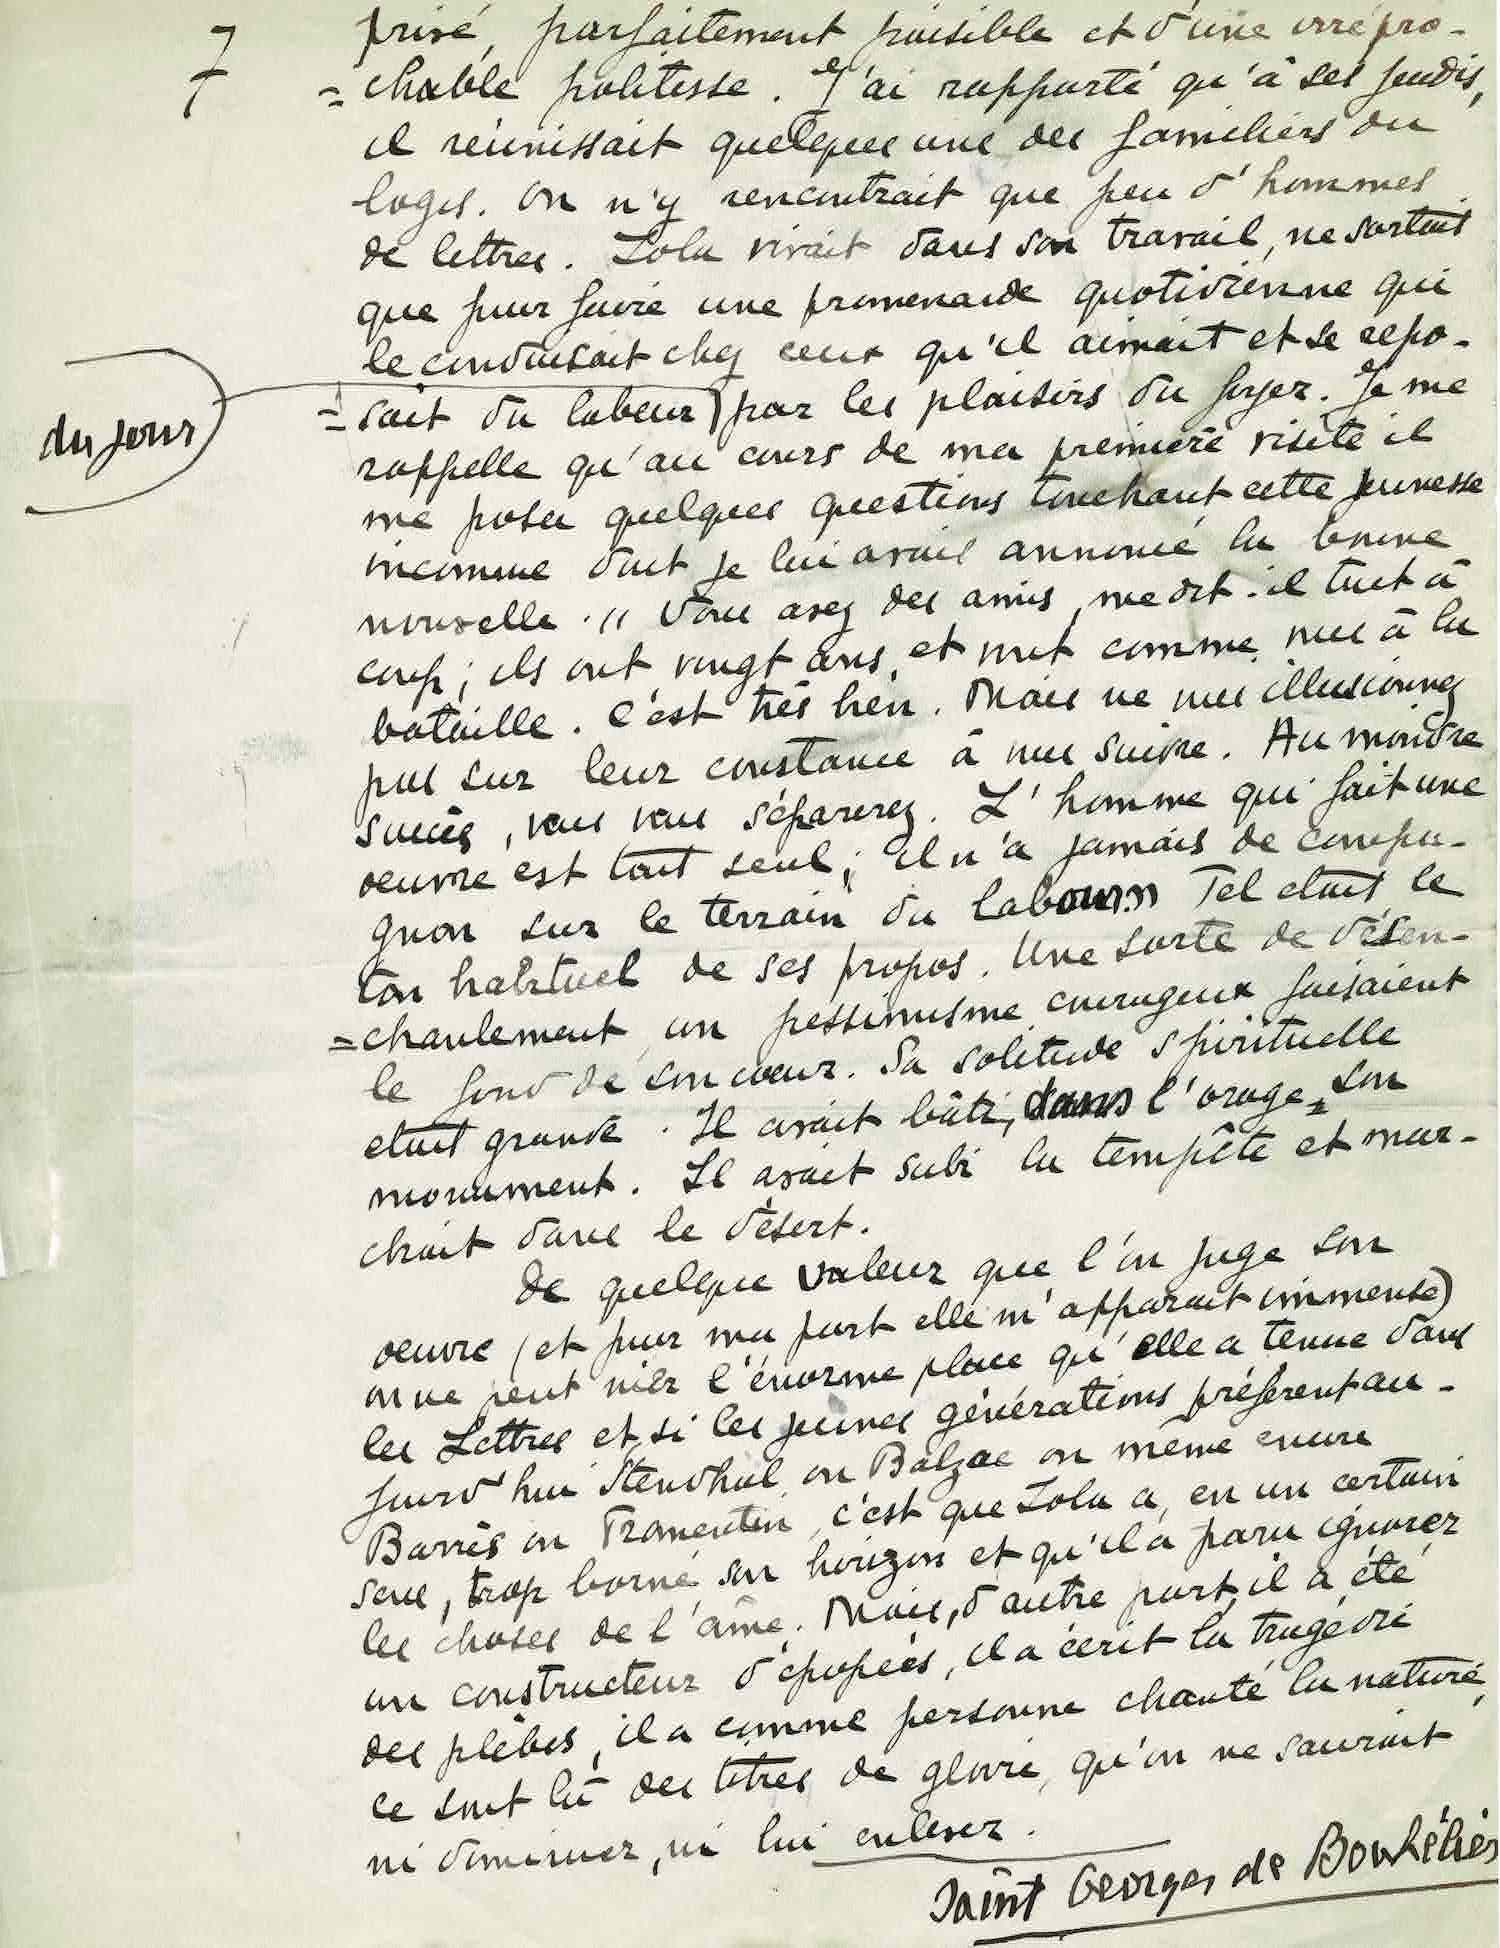 7
privé, parfaitement paisible et d'une irrépro-
= chable politesse. J'ai rapporté qu'à ses jeudis,
il réunissait quelques uns des familiers du
logis. On n'y rencontrait que peu d'hommes
de lettres. Zola vivait dans son travail, ne sortait
que pour faire une promenade quotidienne qui
le conduisait chez ceux qu'il aimait et se repo-
= sait du labeur par les plaisirs du foyer. Je me
du jour
rappelle qu'au cours de ma première visite il
me posa quelques questions touchant cette jeunesse
inconnue dont je lui avais annoncé la bonne
nouvelle. " Vous avez des amis, me dit-il tout à
coup; ils ont vingt ans, et vont comme vous à la
bataille. C'est très bien. Mais ne vous illusionnez
pas sur leur constance à vous suivre. Au moindre
succès, vous vous séparerez. L'homme qui fait une
oeuvre est tout seul; il n'a jamais de compa-
gnon sur le terrain du labour." Tel était le
ton habituel de ses propos. Une sorte de désen-
= chantement, un pessimisme courageux faisaient
le fond de son coeur. Sa solitude spirituelle
était grande. Il avait bâti, dans l'orage, son
monument. Il avait subi la tempête et mar-
chait dans le désert.
De quelque valeur que l'on juge son
oeuvre (et pour ma part elle m'apparait immense)
on ne peut nier l'énorme place qu'elle a tenue dans
les Lettres et si les jeunes générations préfèrent au-
jourd'hui Stendhal ou Balzac ou même encore
Barrès ou Fromentin, c'est que Zola a, en un certain
sens, trop borné son horizon et qu'il a paru ignorer
les choses de l'âme. Mais, d'autre part, il a été
un constructeur d'épopées, il a écrit la tragédie
des plèbes, il a comme personne chanté la nature,
ce sont là des titres de gloire, qu'on ne saurait
ni diminuer, ni lui enlever.
Saint Georges de Bouhélier